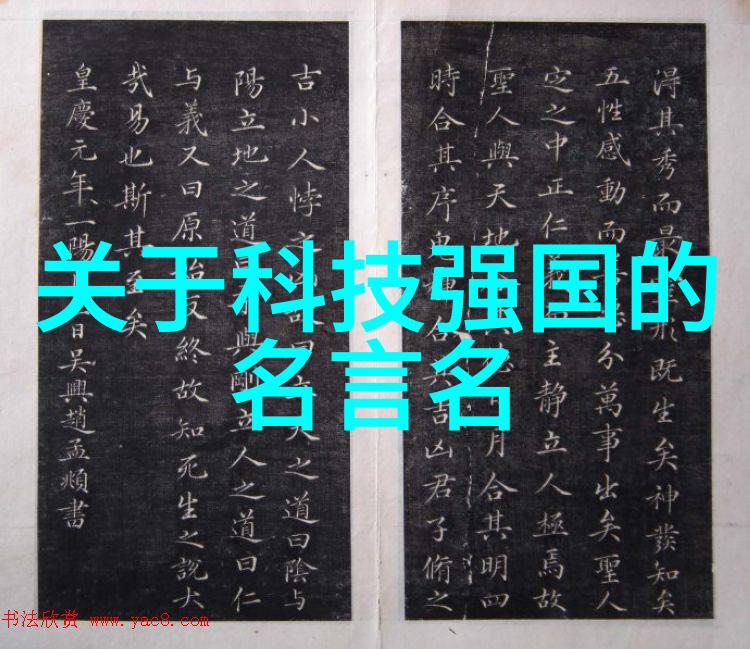 得其秀而最形既生矣神發知矣
五性感動而分萬事出矣聖人
定之中正仁主靜立人極焉故
聖人與天地月合其明四
時合其序鬼合其吉凶君子脩之
吉小人悖之曰立天之道曰陰与
陽立地之道與剛立人之道曰仁
与義又曰原始反終故知死生之說大
哉易也斯其至矣
皇慶元年一陽日吳興趙孟頫書
关于科技强国的
名言名
书法欣赏 www.yac8.com